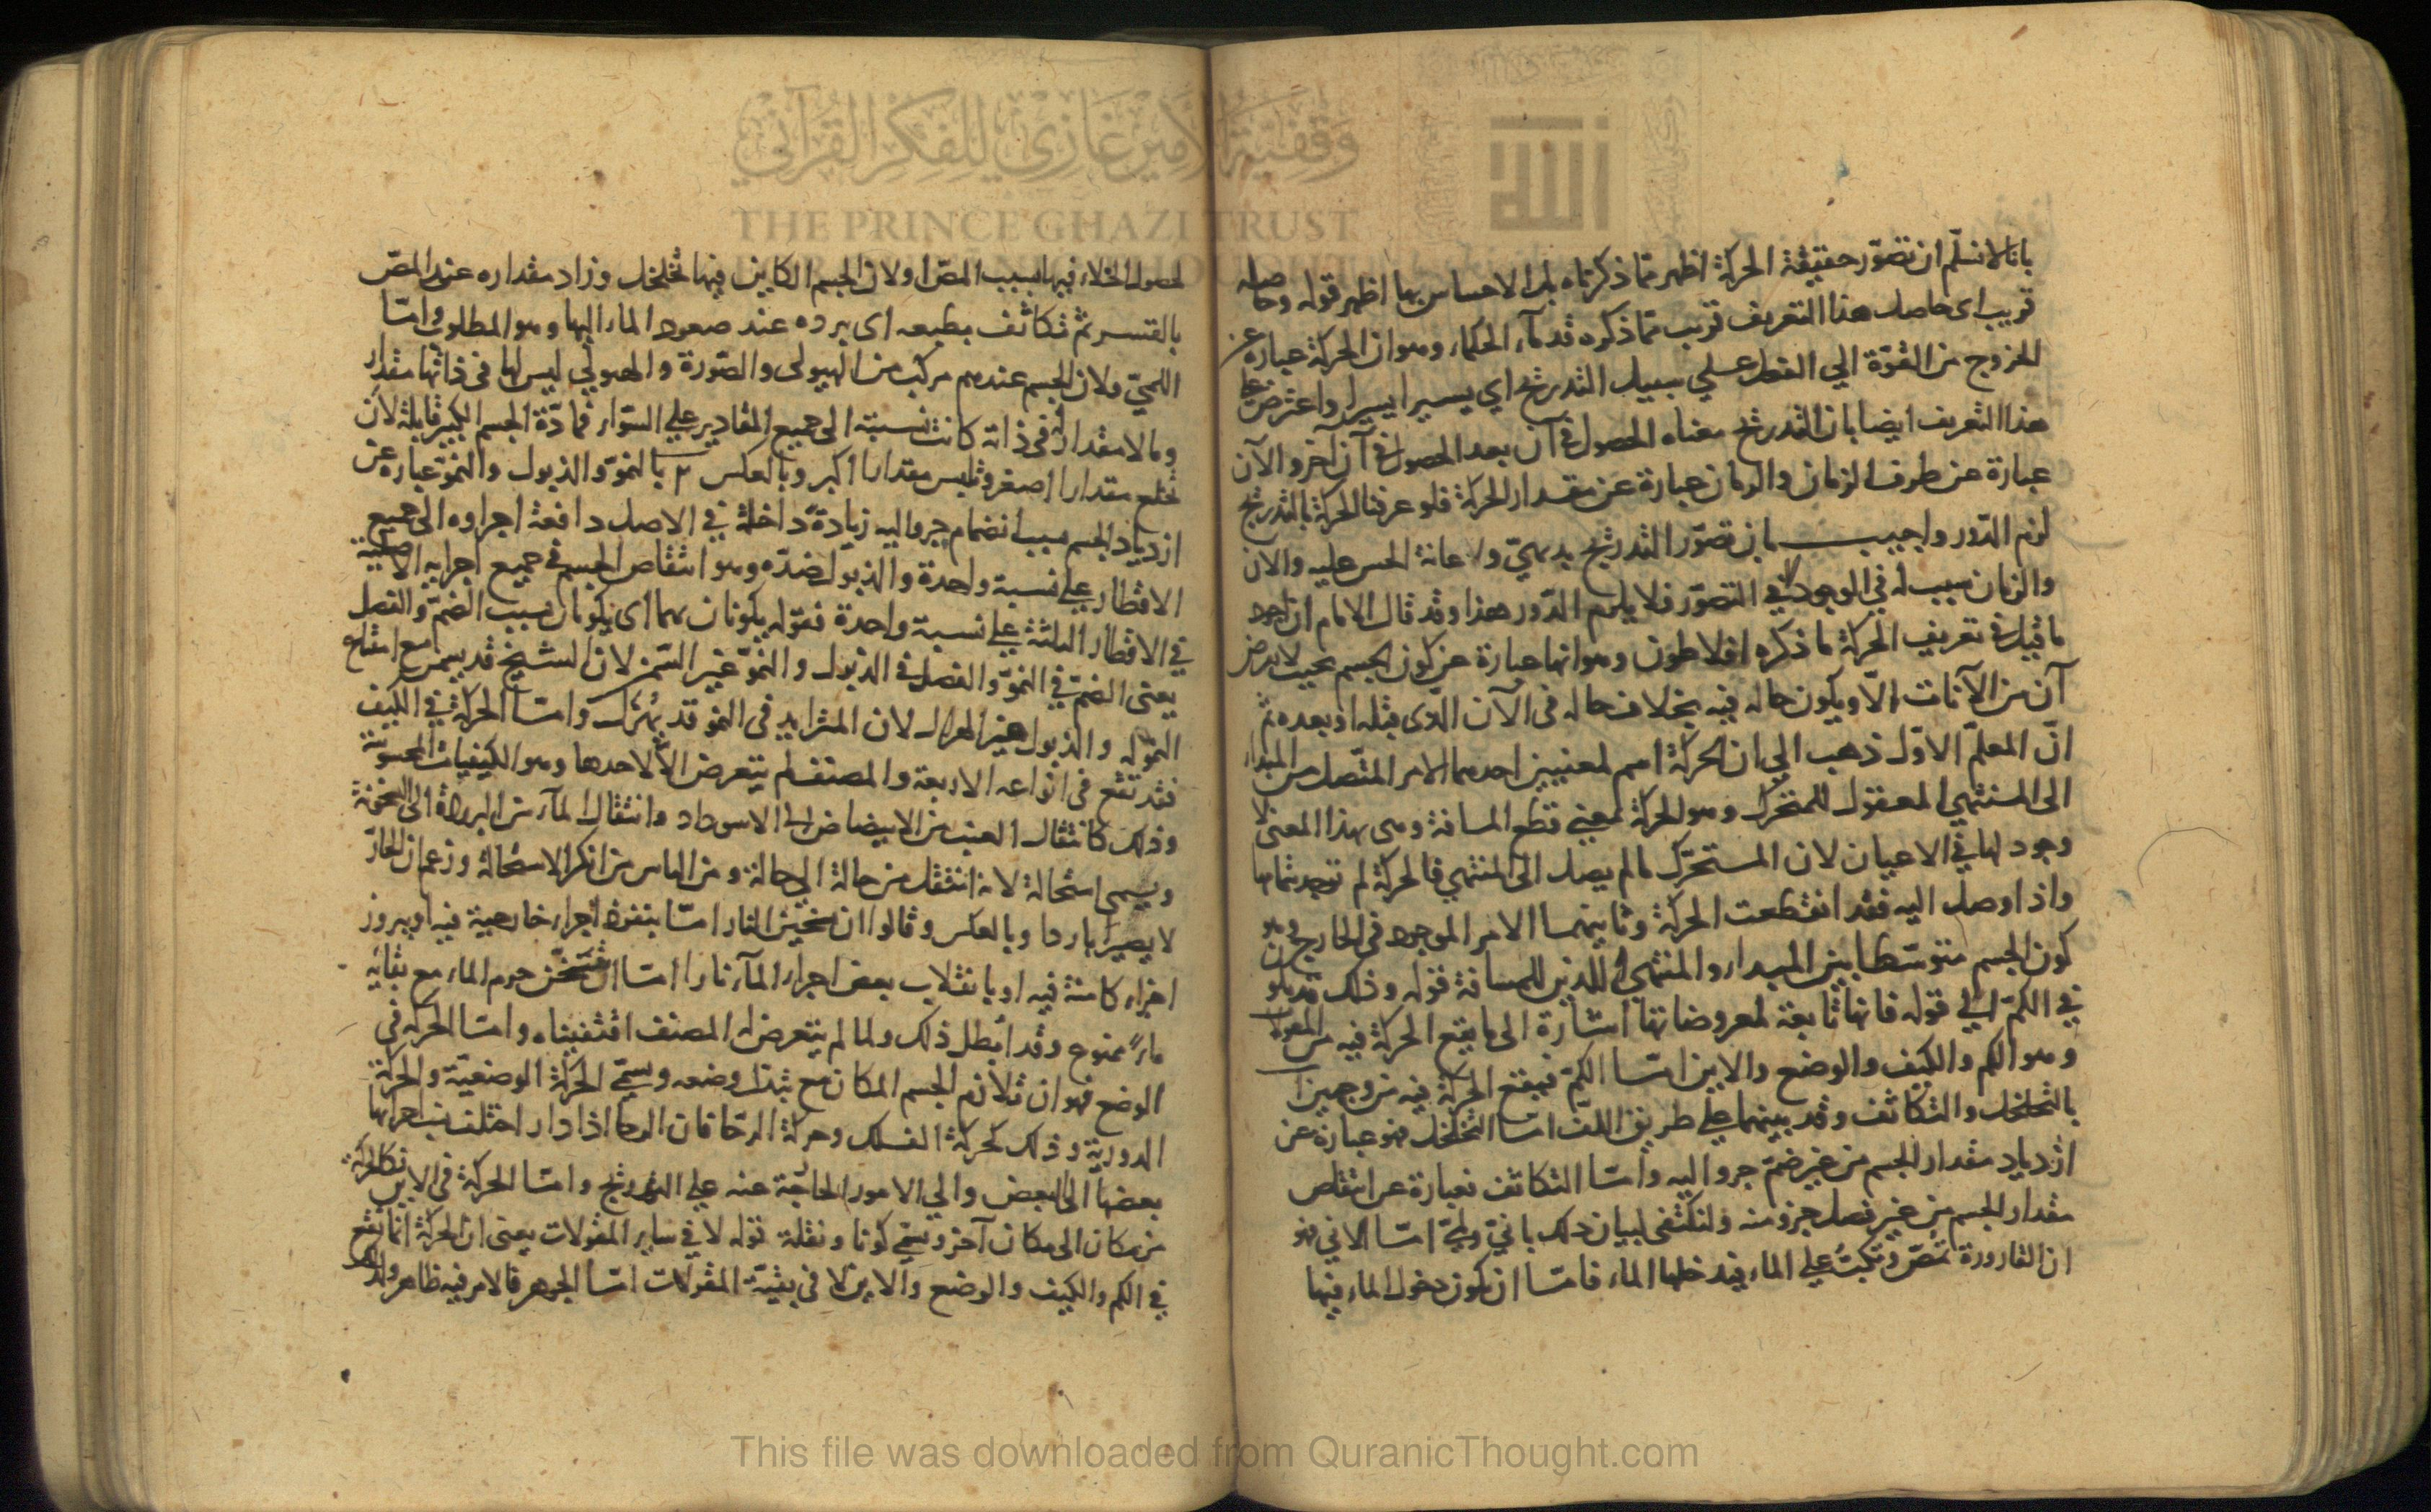 بانا لا نسلم ان تصوّر حقيقة الحركة اظهر مما ذكرناه بل الاحساس بها اظهر قوله وحاصله
قريب اى حاصل هذا التعريف قريب مما ذكره قدماء الحكماء وهو ان الحركة عبارة عن
الخروج من القوّة الي الفعل علي سبيل التدريج اي يسيرا يسيرا واعترض علي
هذا التعريف ايضا بان التدريج معناه الحصول في آن بعد الحصول في آن آخر والآن
عبارة عن طرف الزمان والزمان عبارة عن مقدار الحركة فلو عرفنا الحركة بالتدريج
لزم الدّور واجيب بان تصوّر التدريج بديهيّ ولاعانة الحس عليه والان
والزمان سبب له في الوجود لا في التصوّر فلا يلزم الدّور هذا وقد قال الامام ان اجود
ما قيل في تعريف الحركة ما ذكره افلاطون وهو انها عبارة عن كون الجسم بحيث لا يفرض
آن من الآنات الّا ويكون حاله فيه بخلاف حاله فى الآن الّذى قبله او بعده ثم
انّ المعلّم الاوّل ذهب الي ان الحركة اسم لمعنيين احدهما الامر المتّصل من المبداء
الى المنتهي المعقول للمتحرك وهو الحركة بمعني قطع المسافة وهى بهذا المعنى لا
وجود لها في الاعيان لان المتحرّك ما لم يصل الى المنتهي فالحركة لم توجد بتمامها
واذا وصل اليه فقد انقطعت الحركة وثانيهما الامر الموجود في الخارج وهو
كون الجسم متوسّطا بين المبداء والمنتهى اللذين للمسافة قوله وذلك قد يكون
في الكمّ الي قوله فانها تابعة لمعروضاتها اشارة الى ما يقع الحركة فيه من المقولات
وهو الكم والكيف والوضع والاين امّا الكمّ فيقع الحركة فيه من وجهين
بالتخلخل والتكاثف وقد بينهما علي طريق اللف امّا التخلخل فهو عبارة عن
ازدياد مقدار الجسم من غير ضمّ جزو اليه وامّا التكاثف فعبارة عن انتقاص
مقدار الجسم من غير فصل جزو منه ولنكتفى لبيان ذلك بانيّ ولميّ امّا الاني فهو
ان القارورة تمصّ وتكبّ علي الماء فيدخلها الماء فامّا ان يكون دخول الماء فيها
لحصول الخلاء فيها بسبب المصّ اولان الجسم الكاين فيها تخلخل وزاد مقداره عند المصّ
بالقسر ثم تكاثف بطبعه اى برده عند صعود الماء اليها وهو المطلوب وامّا
اللميّ فلان الجسم عندهم مركب من الهيولى والصّورة والهيولي ليس لها في ذاتها مقدار
وما لا مقدار له في ذاته كانت نسبته الى جميع المقادير علي السّواء فمادّة الجسم الكبير قابلة لان
تخلع مقدارا اصغر وتلبس مقدارا اكبر وبالعكس ٢ بالنموّ والذبول والنموّ عبارة عن
ازدياد الجسم بسبب انضمام جزو اليه زيادةً داخلة في الاصل دافعة اجزاوه الى جميع
الاقطار علي نسبة واحدة والذبول ضدّه وهو انتقاص الجسم في جميع اجزايه الاصلية
في الاقطار الثلثة علي نسبة واحدة فقوله يكونان بهما اى يكونان بسبب الضمّ والفصل
يعنى الضمّ في النموّ والفصل في الذبول والنموّ غير السّمن لان الشيخ قد يسمن مع امتناع
النموّ له والذبول غير الهزال لان المتزايد فى النمو قد يُهزل وامّا الحركة في الكيف
فقد تقع فى انواعه الاربعة والمصنف لم يتعرض الّا لاحدها وهو الكيفيات المحسوسة
وذلك كانتقال العنب من الابيضاض الي الاسوداد وانتقال الماء من البرودة الى السخونة
ويسمى استحالة لانه انتقل من حالة الي حالة ومن الناس من انكر الاستحالة وزعم ان الحارّ
لا يصير باردا وبالعكس وقالوا ان تسخين النار امّا بنفوذ اجزاء خارجية فيه او ببروز
اجزاء كامنة فيه او بانقلاب بعض اجزاء الماء نارا امّا ان يتسخّن جرم الماء مع بقائه
ماءً ممنوع وقد ابطل ذلك ولما لم يتعرض له المصنف اقتفيناه وامّا الحركة في
الوضع فهو ان تلازم الجسم المكان مع تبدّل وضعه ويسمّى الحركة الوضعيّة والحركة
الدورية وذلك كحركة الفلك وحركة الرّحا فان الرحا اذا دار اختلف نسب اجزائها
بعضها الى البعض والي الامور الخارجة عنه علي التدريج وامّا الحركة في الاين فكالحركة
من مكان الى مكان آخر ويسمّى كونا ونقلة قوله لا في ساير المقولات يعنى ان الحركة انما تقع
في الكم والكيف والوضع والاين لا في بقيّة المقولات امّا الجوهر فالامر فيه ظاهر
وقفية الأمير غازي للفكر القرآني
THE PRINCE GHAZI TRUST
This file was downloaded from QuranicThought.com